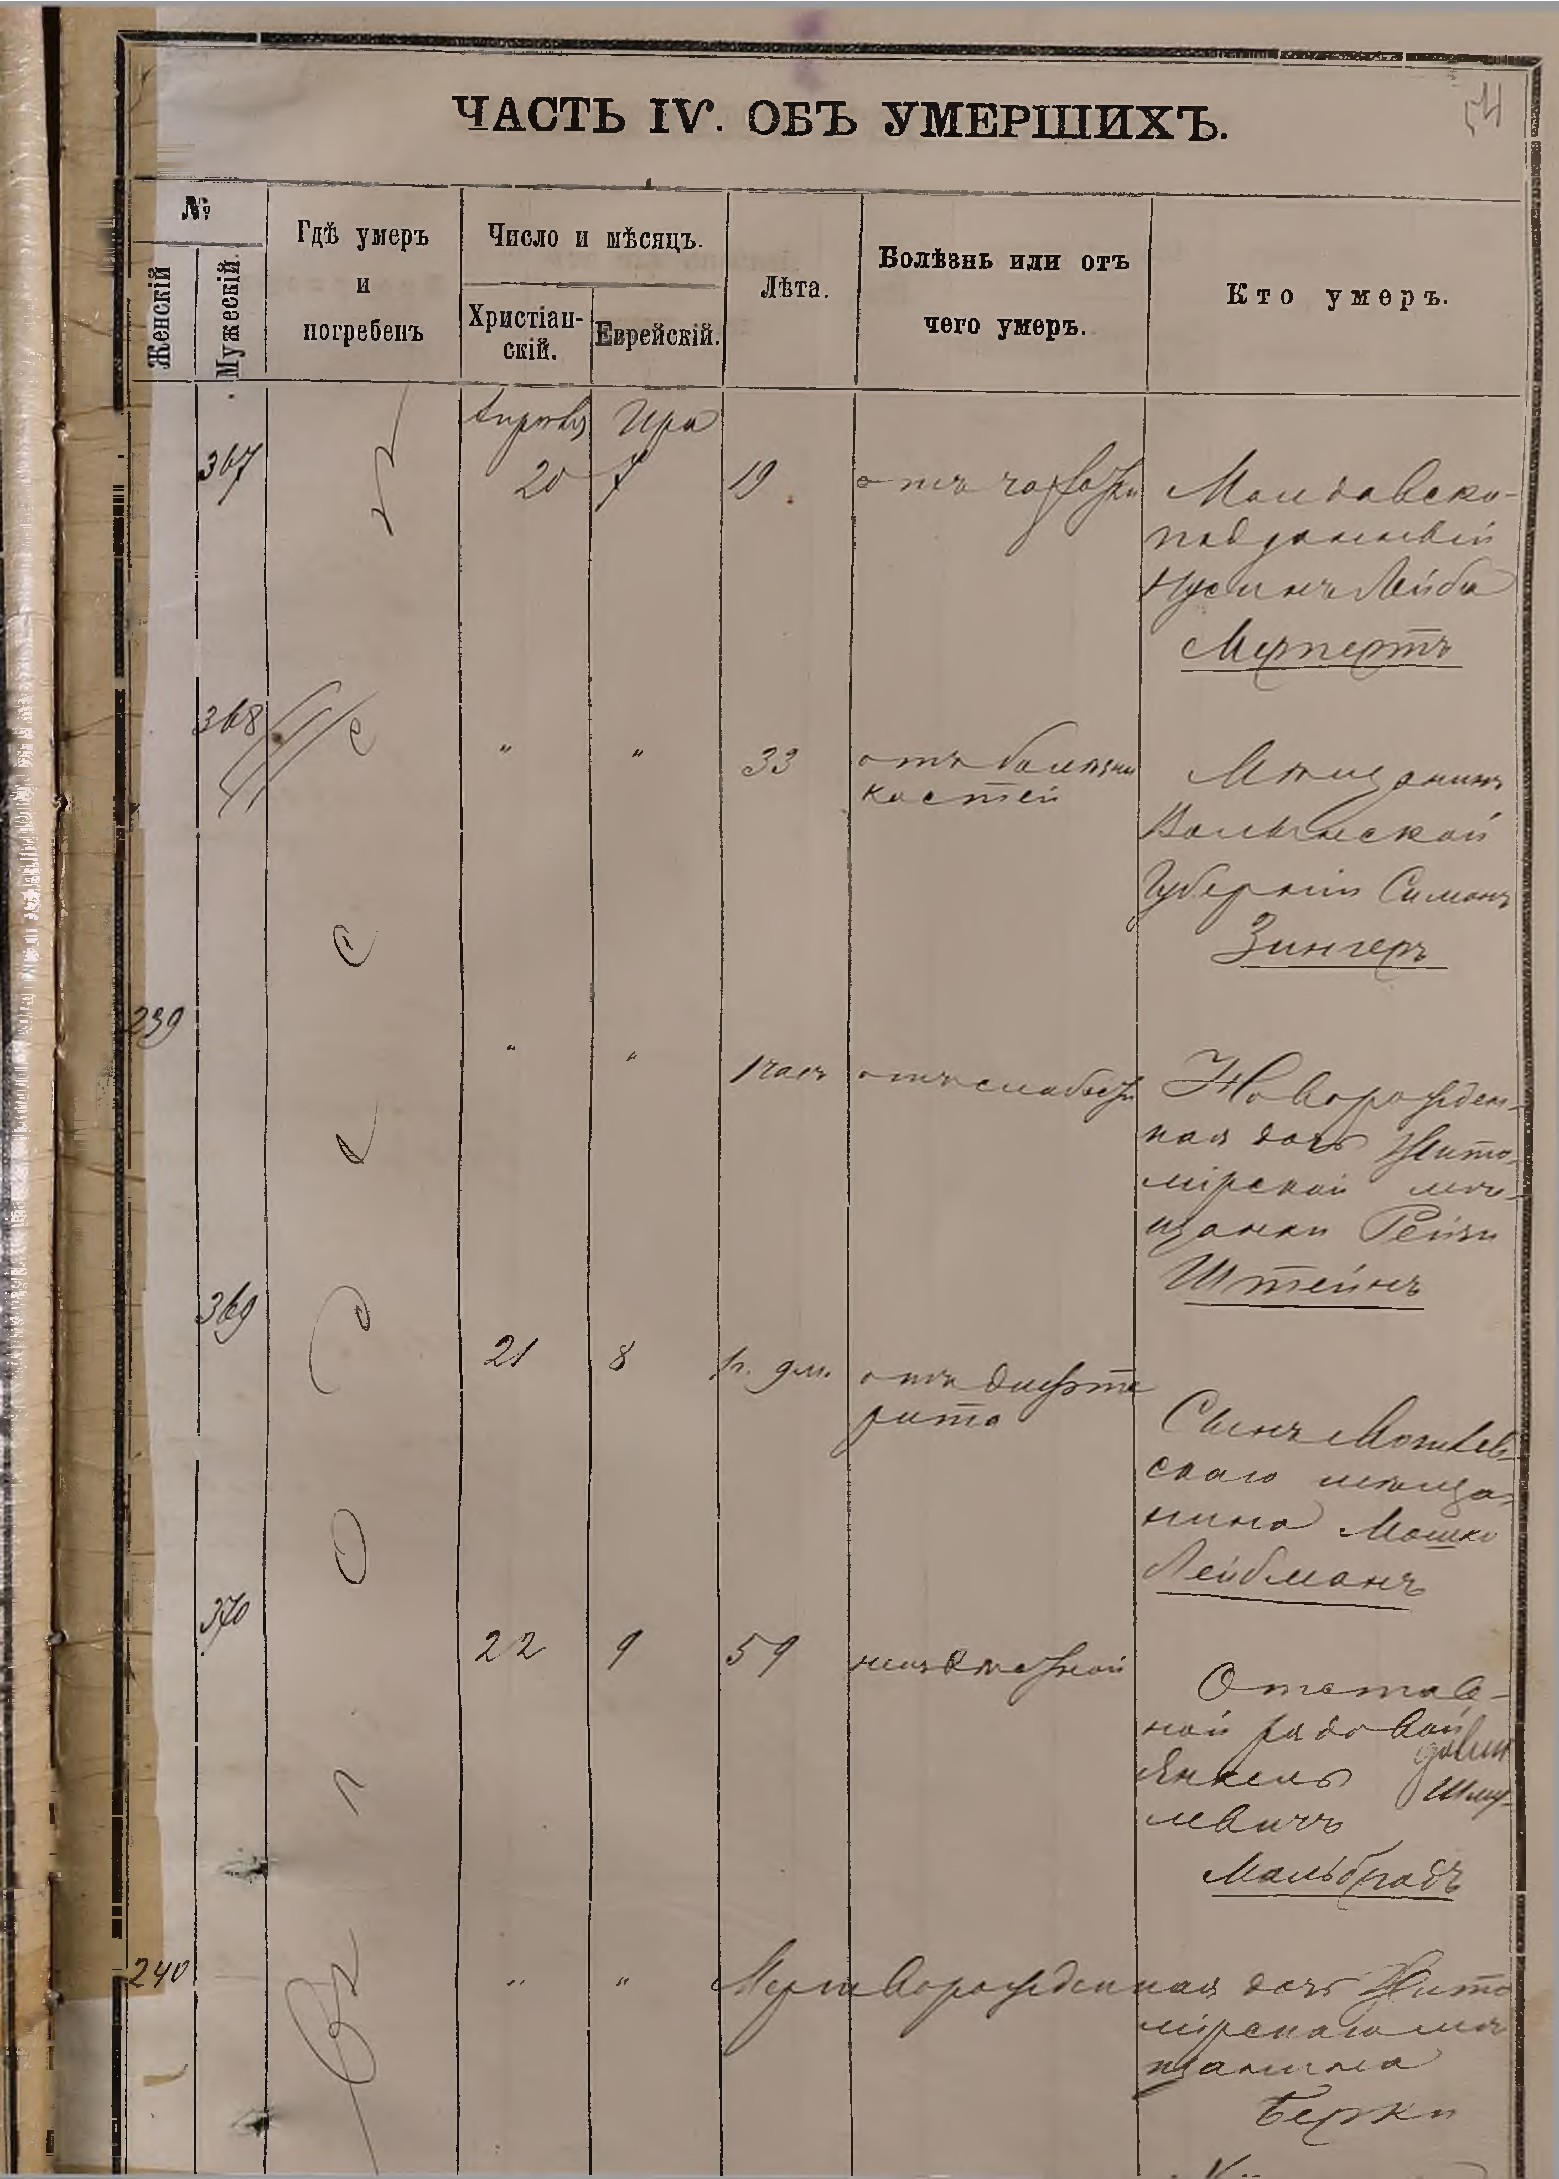 54
ЧАСТЬ IV. ОБЪ УМЕРШИХЪ.
№
Женскій
Мужескій.
Гдѣ умеръ
и
погребенъ
Число и мѣсяцъ.
Христіан-
скій.
Еврейскій.
Лѣта.
Болѣзнь или отъ
чего умеръ.
Кто умеръ.
Въ Одессѣ
Апрѣль Ира
367 20 7 19 отъ чахотки Молдавско-
подданный
Нусинъ Лейба
368 " " 33 отъ болѣзни
костей
Мѣщанинъ
Волынской
Губерніи Симонъ
Зингеръ
239 " " 1 часъ отъ слабости Новорожден-
ная дочь Жито-
мірской мѣ-
щанки Рейзи
Штейнъ
369 21 8 отъ дифте
рита
Сынъ Могилев-
скаго мѣща-
нина Мошко
Лейбманъ
370 22 9 59 неизвѣстной
Отстав-
ной рядовой
Янкель Шму-
левичъ
240 " " Мертворожденная дочь Жито
мірскаго мѣ
щанина
Берки